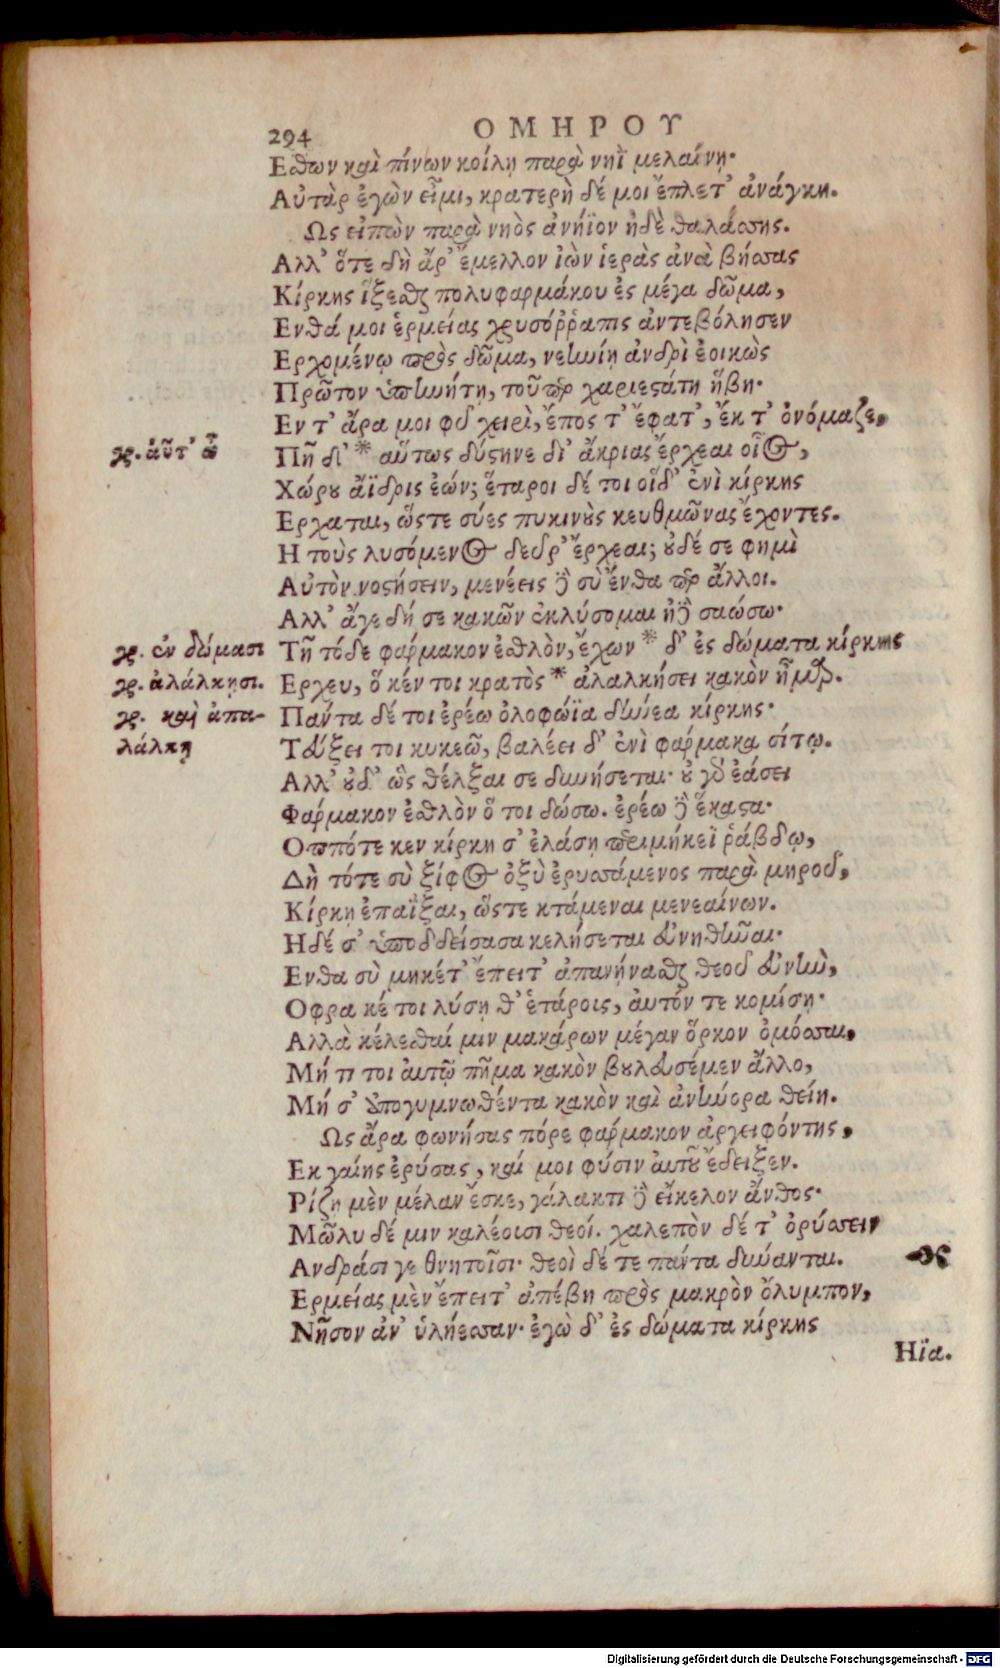 294 ΟΜΗΡΟΥ
Εσθων καὶ πίνων κοίλῃ παρὰ νηῒ μελαίνῃ·
Αὐτὰρ ἐγὼν εἶμι, κρατερὴ δέ μοι ἔπλετ' ἀνάγκη.
Ως εἰπὼν παρὰ νηὸς ἀνήϊον ἠδὲ θαλάσσης.
Αλλ' ὅτε δὴ ἄρ' ἔμελλον ἰὼν ἱερὰς ἀνὰ βήσσας
Κίρκης ἵξεσθαι πολυφαρμάκου ἐς μέγα δῶμα,
Ενθά μοι ἑρμείας χρυσόῤῥαπις ἀντεβόλησεν
Ερχομένῳ πρὸς δῶμα, νεηνίῃ ἀνδρὶ ἐοικὼς
Πρῶτον ὑπηνήτῃ, τοῦπερ χαριεστάτη ἥβη·
Εν τ' ἄρα μοι φῦ χειρὶ, ἔπος τ' ἔφατ', ἔκ τ' ὀνόμαζε,
γρ. αὖτ' ὦ
Πῆ δὴ * αὕτως δύστηνε δι' ἄκριας ἔρχεαι οἶος,
Χώρου ἄϊδρις ἐών; ἕταροι δέ τοι οἵδ' ἐνὶ κίρκης
Ερχαται, ὥστε σύες πυκινοὺς κευθμῶνας ἔχοντες.
Η τοὺς λυσόμενος δεῦρ' ἔρχεαι; οὐδέ σε φημὶ
Αὐτὸν νοστήσειν, μενέεις δὲ σὺ ἔνθα περ ἄλλοι.
Αλλ' ἄγε δή σε κακῶν ἐκλύσομαι ἠδὲ σαώσω·
γρ. ἐν δώμασι
Τῆ τόδε φάρμακον ἐσθλὸν, ἔχων * δ' ἐς δώματα κίρκης
γρ. ἀλάλκῃσι.
Ερχευ, ὅ κέν τοι κρατὸς * ἀλαλκήσει κακὸν ἦμαρ.
γρ. καὶ ἀπα-
Πάντα δέ τοι ἐρέω ὀλοφώϊα δήνεα κίρκης·
λάλκῃ
Τεύξει τοι κυκεῶ, βαλέει δ' ἐνὶ φάρμακα σίτῳ.
Αλλ' οὐδ' ὣς θέλξαι σε δυνήσεται· οὐ γὰρ ἐάσει
Φάρμακον ἐσθλὸν ὅ τοι δώσω. ἐρέω δὲ ἕκαστα·
Οππότε κεν κίρκη σ' ἐλάσῃ περιμήκεϊ ῥάβδῳ,
Δὴ τότε σὺ ξίφος ὀξὺ ἐρυσσάμενος παρὰ μηροῦ,
Κίρκῃ ἐπαῒξαι, ὥστε κτάμεναι μενεαίνων.
Ηδέ σ' ὑποδδείσασα κελήσεται εὐνηθῆναι·
Ενθα σὺ μηκέτ' ἔπειτ' ἀπανήνασθαι θεοῦ εὐνὴν,
Οφρα κέ τοι λύσῃ θ' ἑτάροις, αὐτόν τε κομίσῃ·
Αλλὰ κέλεσθαί μιν μακάρων μέγαν ὅρκον ὀμόσσαι,
Μή τι τοι αὐτῷ πῆμα κακὸν βουλευσέμεν ἄλλο,
Μή σ' ἀπογυμνωθέντα κακὸν καὶ ἀνήνορα θείη.
Ως ἄρα φωνήσας πόρε φάρμακον ἀργειφόντης,
Εκ γαίης ἐρύσας, καί μοι φύσιν αὐτοῦ ἔδειξεν.
Ρίζῃ μὲν μέλαν ἔσκε, γάλακτι δὲ εἴκελον ἄνθος·
Μῶλυ δέ μιν καλέουσι θεοί. χαλεπὸν δέ τ' ὀρύσσειν
Ανδράσι γε θνητοῖσι· θεοὶ δέ τε πάντα δύνανται.
Ερμείας μὲν ἔπειτ' ἀπέβη πρὸς μακρὸν ὄλυμπον,
Νῆσον ἀν' ὑλήεσσαν· ἐγὼ δ' ἐς δώματα κίρκης
Ηϊα.
Digitalisierung gefördert durch die Deutsche Forschungsgemeinschaft - DFG